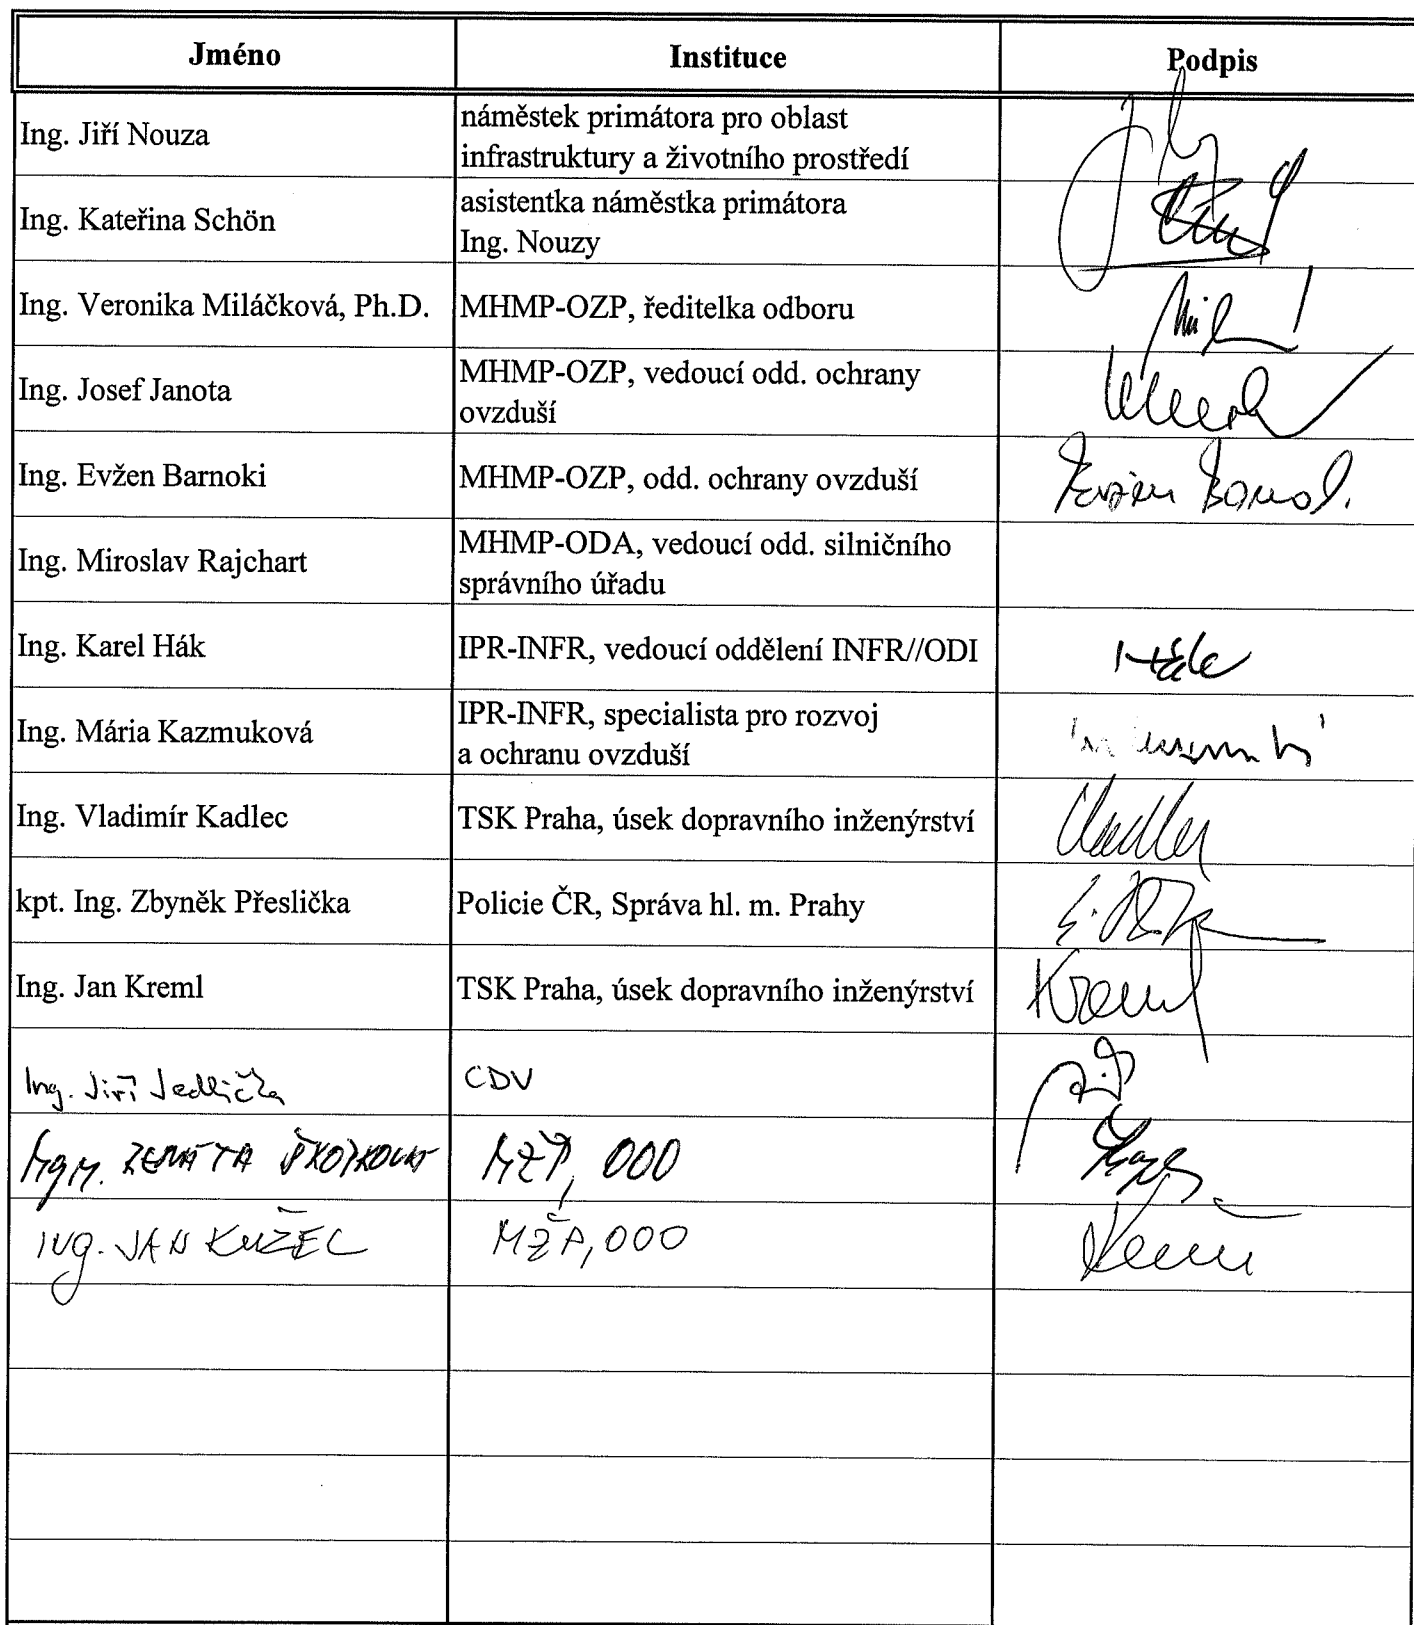 Jméno Instituce Podpis
Ing. Jiří Nouza
náměstek primátora pro oblast
infrastruktury a životního prostředí
Ing. Kateřina Schön
asistentka náměstka primátora
Ing. Nouzy
Ing. Veronika Miláčková, Ph.D. MHMP-OZP, ředitelka odboru
Ing. Josef Janota
MHMP-OZP, vedoucí odd. ochrany
ovzduší
Ing. Evžen Barnoki MHMP-OZP, odd. ochrany ovzduší
Ing. Miroslav Rajchart
MHMP-ODA, vedoucí odd. silničního
správního úřadu
Ing. Karel Hák IPR-INFR, vedoucí oddělení INFR//ODI Hák
Ing. Mária Kazmuková
IPR-INFR, specialista pro rozvoj
a ochranu ovzduší
Ing. Vladimír Kadlec TSK Praha, úsek dopravního inženýrství Kadlec
kpt. Ing. Zbyněk Přeslička Policie ČR, Správa hl. m. Prahy
Ing. Jan Kreml TSK Praha, úsek dopravního inženýrství Kreml
Ing. Jiří Jedlička CDV
Mgr. RENÁTA MŽP, OOO
ING. JAN KUŽEL MŽP, OOO